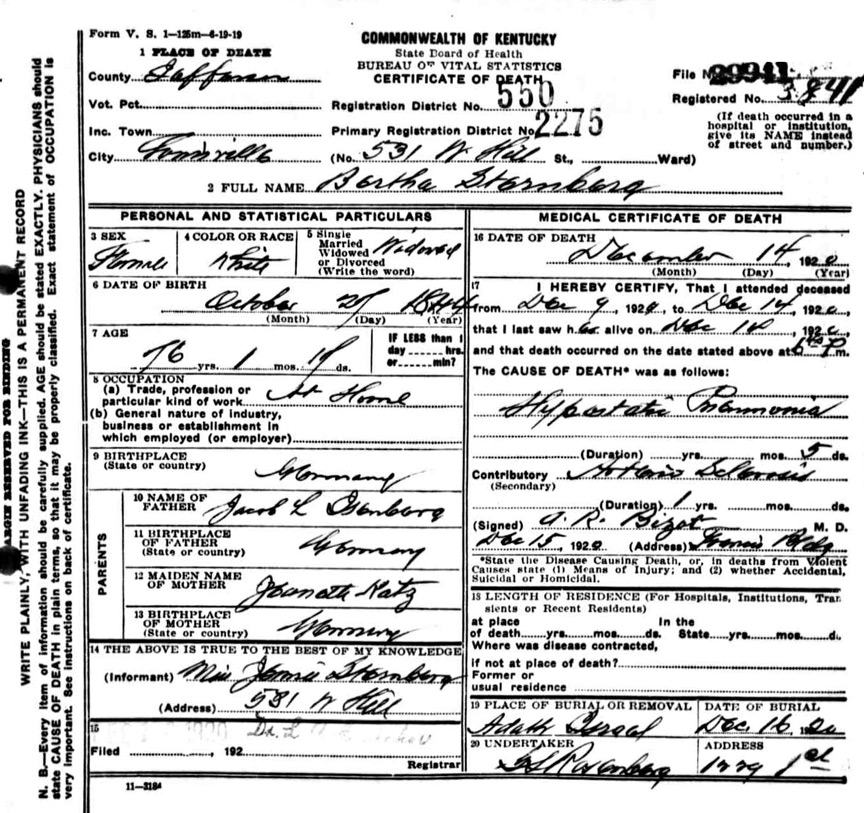 Form V. S. 1—125m—6-19-19
COMMONWEALTH OF KENTUCKY
State Board of Health
BUREAU OF VITAL STATISTICS
CERTIFICATE OF DEATH
1 PLACE OF DEATH
County Jefferson
File No. 29941
Vot. Pct.
Registration District No. 550
Registered No. 3841
Inc. Town
Primary Registration District No. 2275
(If death occurred in a hospital or institution, give its NAME instead of street and number.)
City Louisville (No. 531 W Hill St., Ward)
2 FULL NAME Bertha Sternberg
PERSONAL AND STATISTICAL PARTICULARS
3 SEX Female
4 COLOR OR RACE White
5 Single Married Widowed or Divorced (Write the word) Widowed
6 DATE OF BIRTH October 27 1844
(Month) (Day) (Year)
7 AGE 76 yrs. 1 mos. 17 ds.
IF LESS than 1 day hrs. or min?
8 OCCUPATION
(a) Trade, profession or particular kind of work At Home
(b) General nature of industry, business or establishment in which employed (or employer)
9 BIRTHPLACE (State or country) Germany
PARENTS
10 NAME OF FATHER Jacob L Isenberg
11 BIRTHPLACE OF FATHER (State or country) Germany
12 MAIDEN NAME OF MOTHER Katz
13 BIRTHPLACE OF MOTHER (State or country) Germany
14 THE ABOVE IS TRUE TO THE BEST OF MY KNOWLEDGE
(Informant) Miss Jennie Sternberg
(Address) 531 W Hill
15
Filed , 192
Registrar
11—3184
MEDICAL CERTIFICATE OF DEATH
16 DATE OF DEATH December 14, 1920
(Month) (Day) (Year)
17 I HEREBY CERTIFY, That I attended deceased
from Dec 9, 1920, to Dec 14, 1920,
that I last saw her alive on Dec 14, 1920,
and that death occurred on the date stated above at P m.
The CAUSE OF DEATH* was as follows:
Hypostatic Pneumonia
(Duration) yrs. mos. 5 ds.
Contributory Arterio Sclerosis
(Secondary)
(Duration) 1 yrs. mos. ds.
(Signed) A. R. Bizot M. D.
Dec 15, 1920 (Address) Francis Bldg
*State the Disease Causing Death, or, in deaths from Violent Causes state (1) Means of Injury; and (2) whether Accidental, Suicidal or Homicidal.
18 LENGTH OF RESIDENCE (For Hospitals, Institutions, Transients or Recent Residents)
at place of death yrs. mos. ds. In the State yrs. mos. d.
Where was disease contracted,
if not at place of death?
Former or usual residence
19 PLACE OF BURIAL OR REMOVAL Adath Israel
DATE OF BURIAL Dec 16 20
20 UNDERTAKER Rosenberg
ADDRESS 1229 1st
ARGIN RESERVED FOR BINDING
WRITE PLAINLY, WITH UNFADING INK—THIS IS A PERMANENT RECORD
N. B.—Every item of information should be carefully supplied. AGE should be stated EXACTLY. PHYSICIANS should
state CAUSE OF DEATH in plain terms, so that it may be properly classified. Exact statement of OCCUPATION is
very important. See instructions on back of certificate.